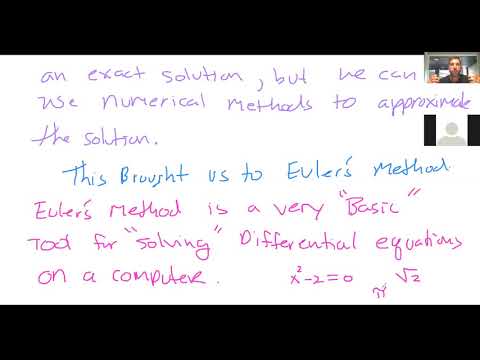 an exact solution, but we can
use numerical methods to approximate
the solution.
This Brought us to Euler's Method.
Euler's Method is a very "Basic"
Tool for "solving" Differential equations
on a computer.
x²-2=0 π √2